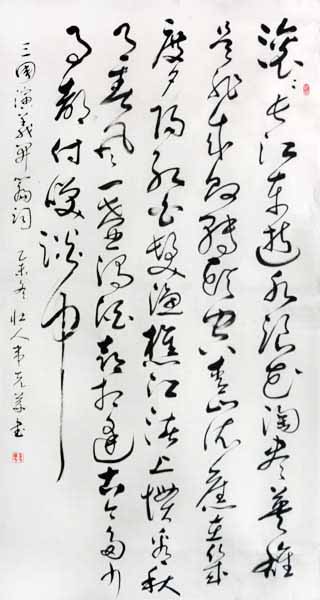 滚〻长江东逝水浪花淘尽英雄
是非成败转头空青山依旧在几
度夕阳红白发渔樵江渚上惯看秋
月春风一壶浊酒喜相逢古今多少
事都付笑谈中
三國演義开篇词 乙未冬 壮人韦克义书